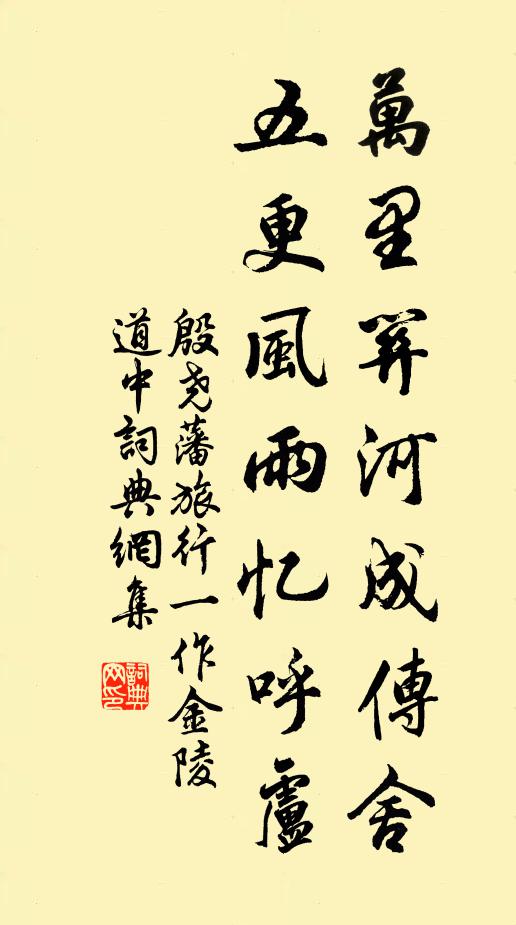 萬里關河成傳舍
五更風雨忆呼盧
殷尧藩旅行一作金陵
道中詞典網集
詞典
网印